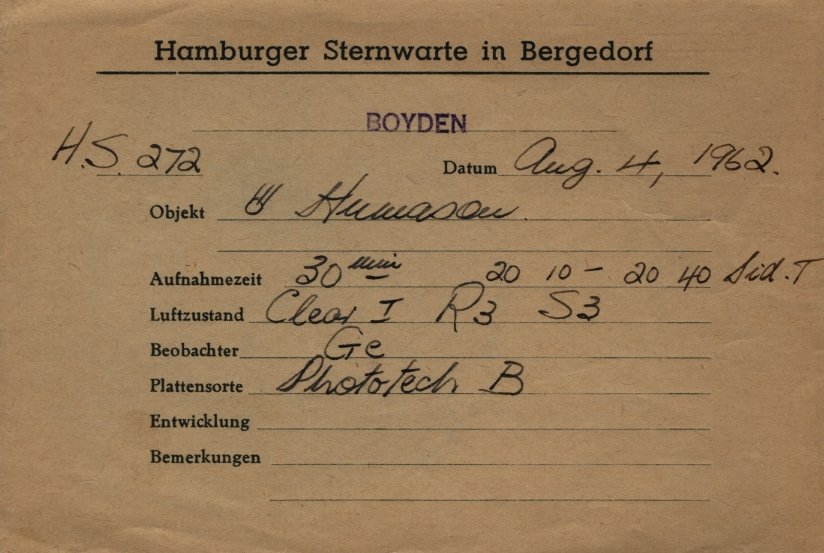 Hamburger Sternwarte in Bergedorf
BOYDEN
H.S. 272 Datum Aug. 4, 1962.
Objekt ☄ Humason.
Aufnahmezeit 30 min 20 10 - 20 40 Sid. T
Luftzustand Clear I R3 S3
Beobachter Ge
Plattensorte Phototech B
Entwicklung
Bemerkungen